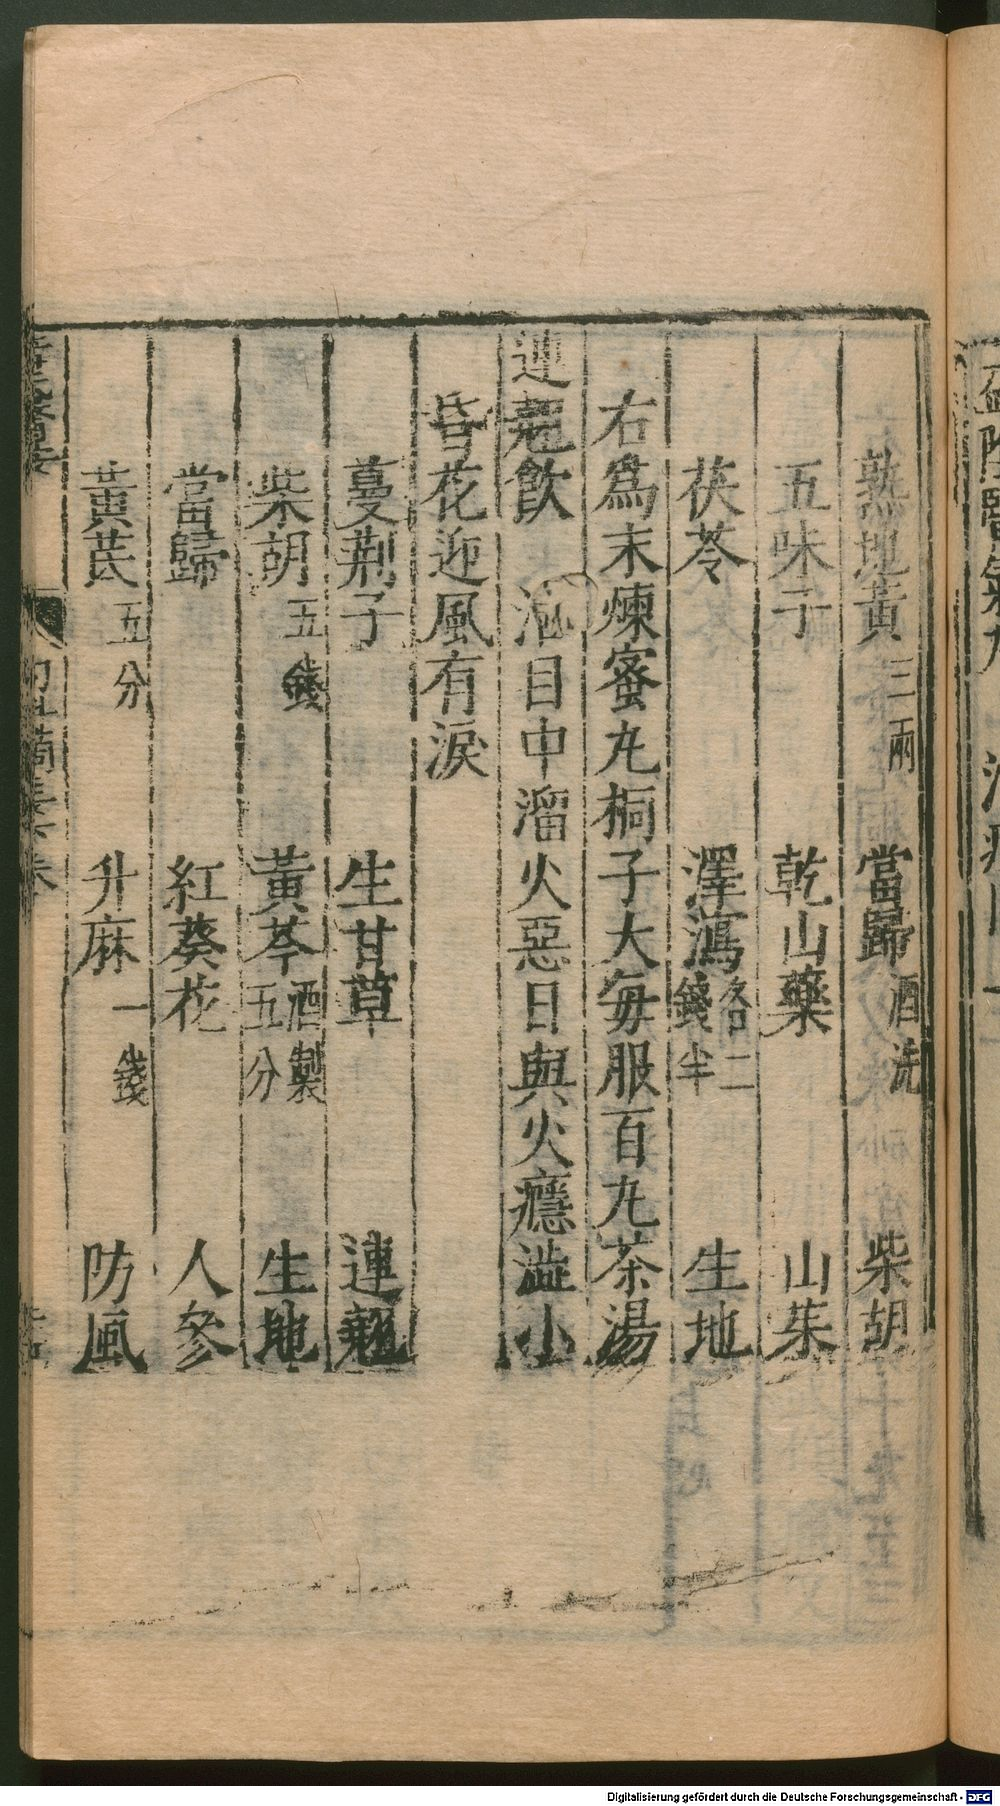 熟地黃三兩 當歸酒洗 柴胡
五味子 乾山藥 山茱
茯苓 澤瀉各二錢半 生地
右為末煉蜜丸桐子大每服百丸茶湯
連翹飲 治目中溜火惡日與火癮澁小
昏花迎風有淚
蔓荆子 生甘草 連翹
柴胡五錢 黃芩酒製五分 生地
當歸 紅葵花 人參
黃芪五分 升麻一錢 防風
Digitalisierung gefördert durch die Deutsche Forschungsgemeinschaft - DFG